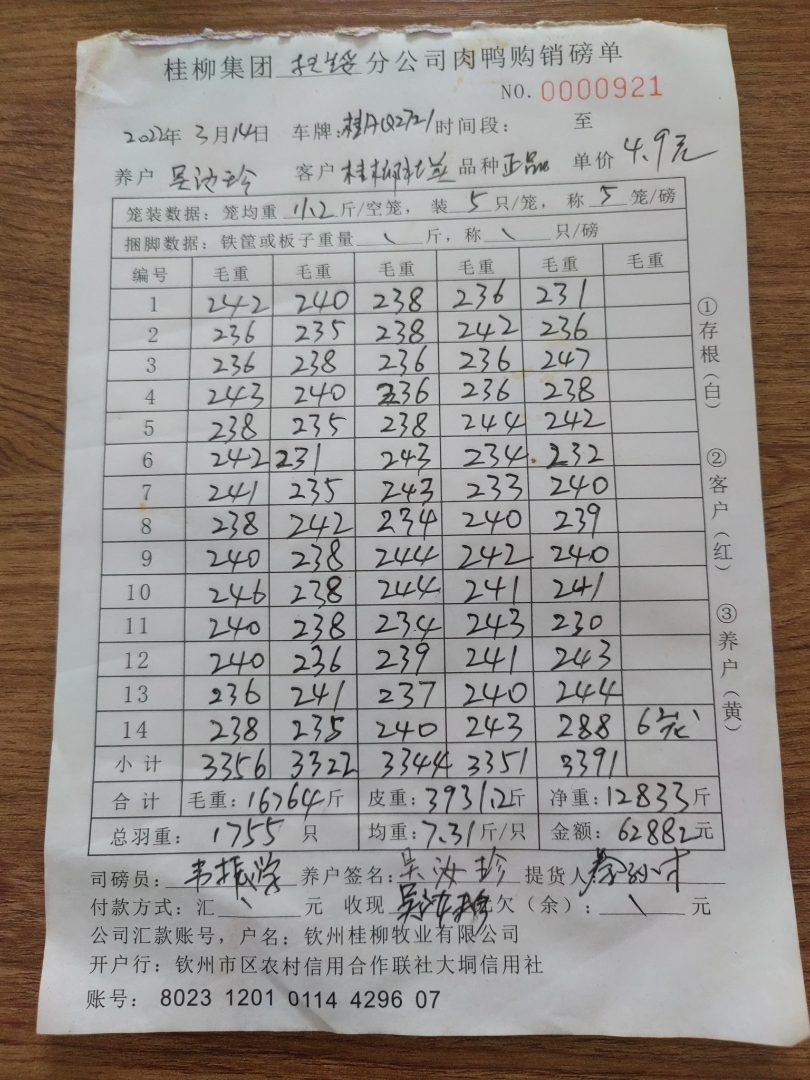 桂柳集团 桂绥 分公司肉鸭购销磅单
NO. 0000921
2022年 3月14日 车牌:桂AQ2721 时间段: 至
养户 吴汝珍 客户 桂柳 品种 正品 单价 4.9元
笼装数据:笼均重 11.2 斤/空笼,装 5 只/笼,称 5 笼/磅
捆脚数据:铁筐或板子重量 \ 斤,称 \ 只/磅
编号 毛重 毛重 毛重 毛重 毛重 毛重
1 242 240 238 236 231
2 236 235 238 242 236
3 236 238 236 236 247
4 243 240 236 236 238
5 238 235 238 244 242
6 242 231 243 234 232
7 241 235 243 233 240
8 238 242 234 240 239
9 240 238 244 242 240
10 246 238 244 241 241
11 240 238 234 243 230
12 240 236 239 241 243
13 236 241 237 240 244
14 238 235 240 243 288 6笼
小计 3356 3322 3344 3351 3391
合计 毛重:16764斤 皮重:3931.2斤 净重:12833斤
总羽重: 1755 只 均重:7.31斤/只 金额:62882元
司磅员: 韦振学 养户签名: 吴汝珍 提货人:
付款方式:汇 \ 元 收现 吴汝珍 元欠(余): \ 元
公司汇款账号,户名:钦州桂柳牧业有限公司
开户行:钦州市区农村信用合作联社大垌信用社
账号: 8023 1201 0114 4296 07
①存根(白) ②客户(红) ③养户(黄)